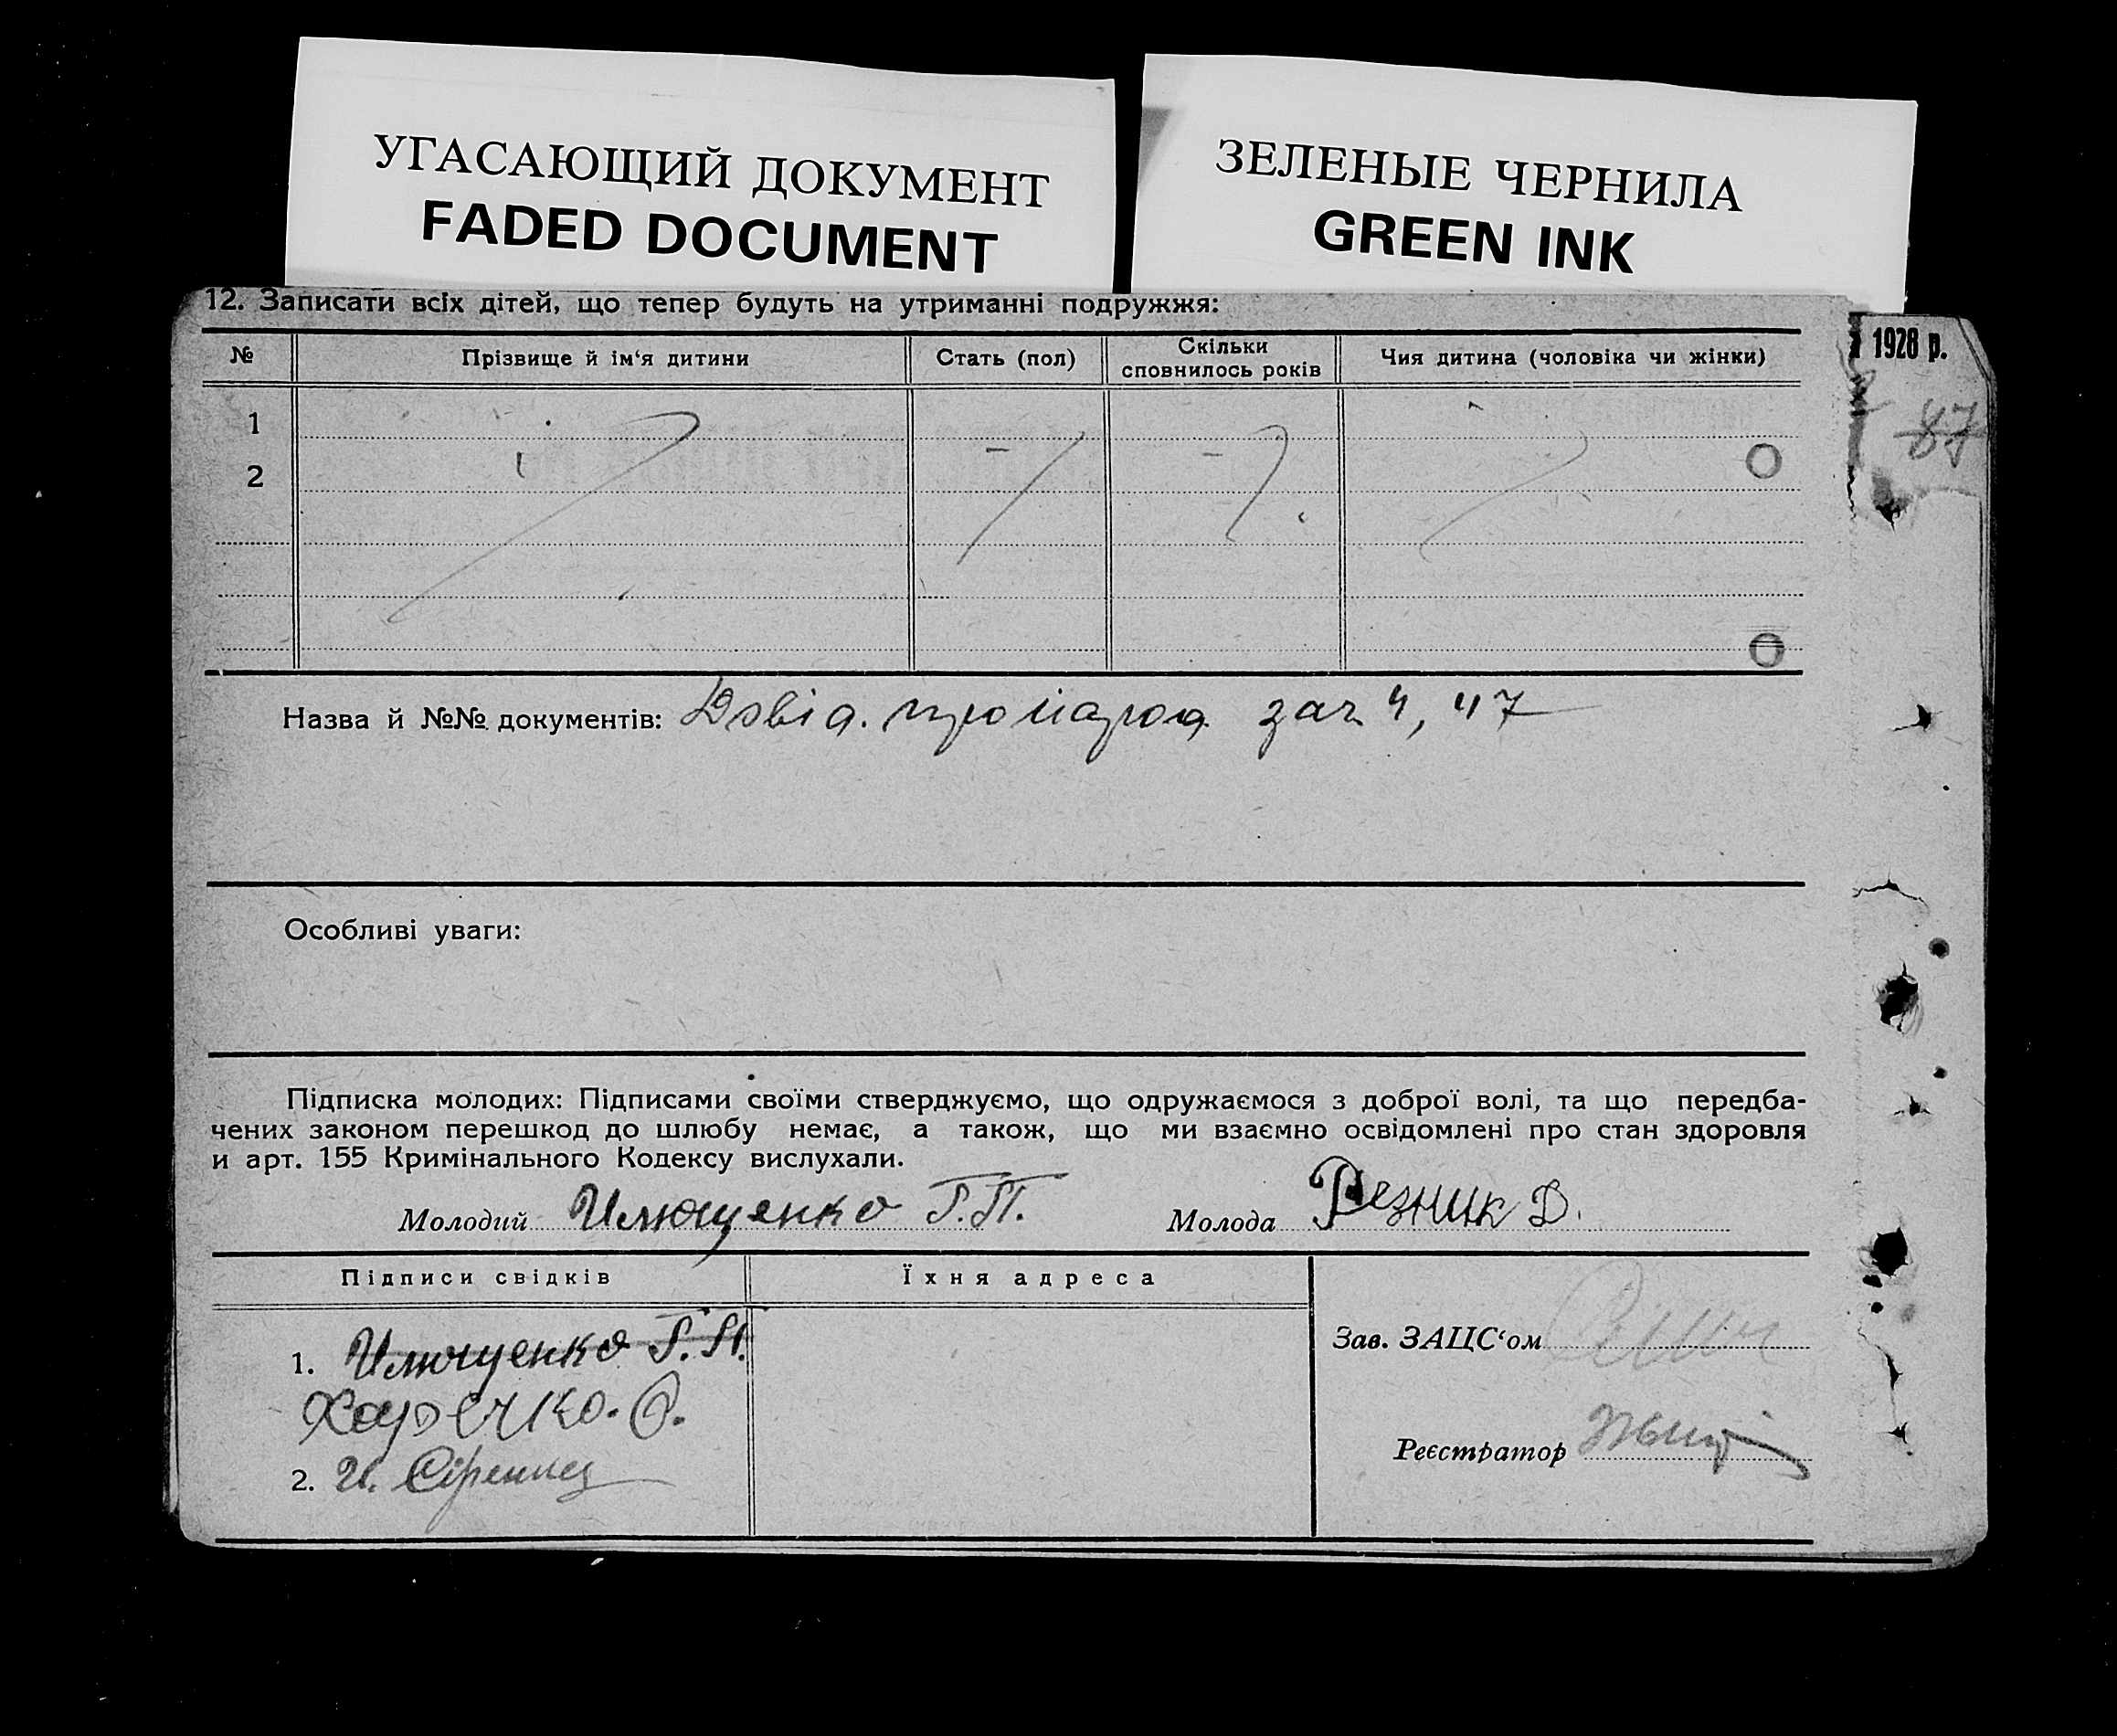 УГАСАЮЩИЙ ДОКУМЕНТ
FADED DOCUMENT
ЗЕЛЕНЫЕ ЧЕРНИЛА
GREEN INK
12. Записати всіх дітей, що тепер будуть на утриманні подружжя:
1928 р.
№ Прізвище й ім‘я дитини Стать (пол) Скільки сповнилось років Чия дитина (чоловіка чи жінки)
87
1
2
Назва й №№ документів: зач 4, 47
Особливі уваги:
Підписка молодих: Підписами своїми стверджуємо, що одружаємося з доброї волі, та що передба-
чених законом перешкод до шлюбу немає, а також, що ми взаємно освідомлені про стан здоровля
и арт. 155 Кримінального Кодексу вислухали.
Молодий Илющенко Г.П. Молода Резник Д.
Підписи свідків Їхня адреса
1. Илющенко Г.П.
Харечко. О.
2. И.
Зав. ЗАЦС‘ом
Реєстратор